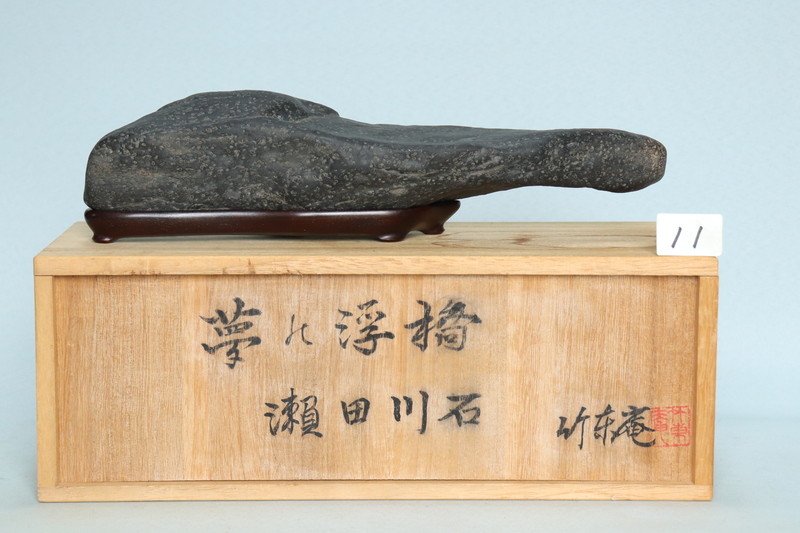 11
夢の浮橋
瀬田川石
竹東庵